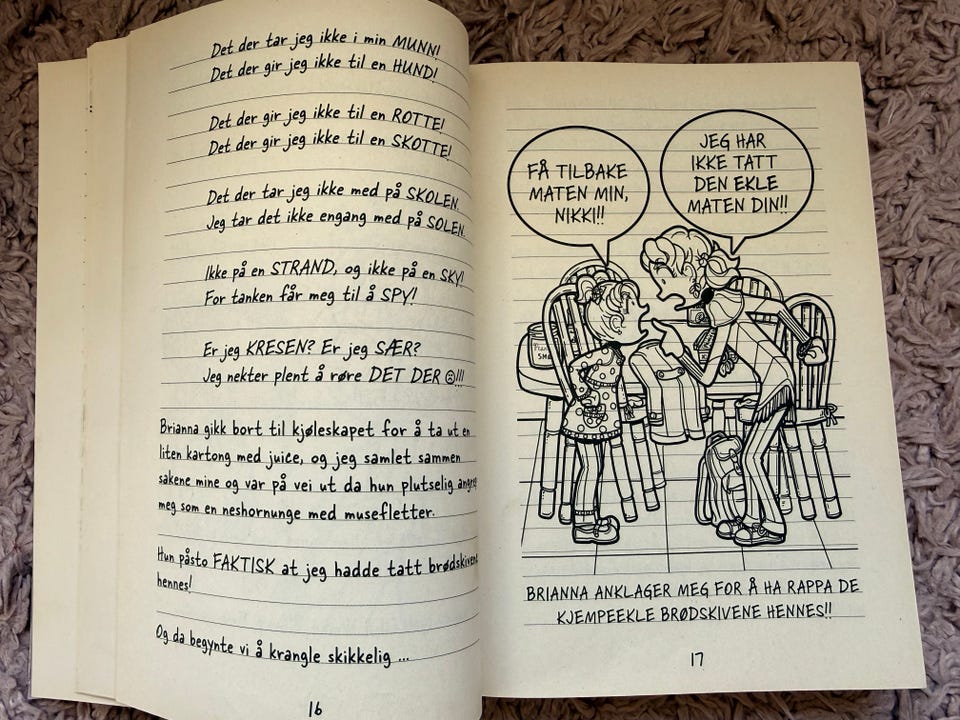 Det der tar jeg ikke i min MUNN!
Det der gir jeg ikke til en HUND!
Det der gir jeg ikke til en ROTTE!
Det der gir jeg ikke til en SKOTTE!
Det der tar jeg ikke med på SKOLEN.
Jeg tar det ikke engang med på SOLEN.
Ikke på en STRAND, og ikke på en SKY!
For tanken får meg til å SPY!
Er jeg KRESEN? Er jeg SÆR?
Jeg nekter plent å røre DET DER ☹!!!
Brianna gikk bort til kjøleskapet for å ta ut en
liten kartong med juice, og jeg samlet sammen
sakene mine og var på vei ut da hun plutselig angrep
meg som en neshornunge med musefletter.
Hun påsto FAKTISK at jeg hadde tatt brødskivene
hennes!
Og da begynte vi å krangle skikkelig ...
16
FÅ TILBAKE
MATEN MIN,
NIKKI!!
JEG HAR
IKKE TATT
DEN EKLE
MATEN DIN!!
BRIANNA ANKLAGER MEG FOR Å HA RAPPA DE
KJEMPEEKLE BRØDSKIVENE HENNES!!
17